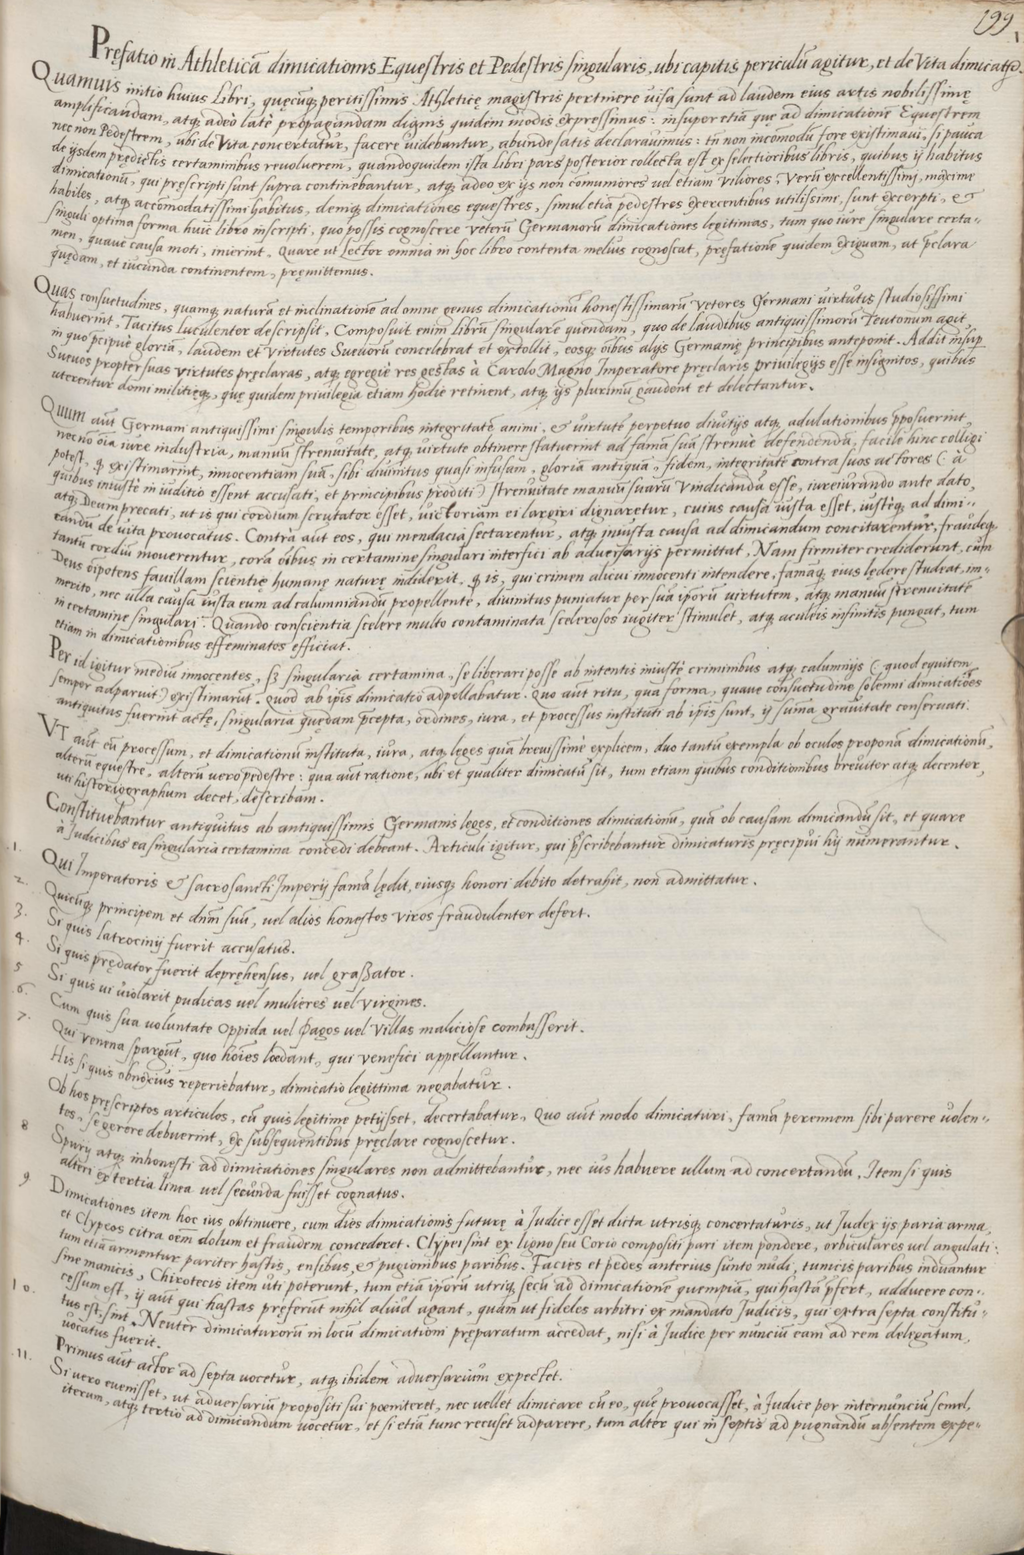 199
Pręfatio in Athleticã dimicationis Equestris et Pedestris singularis, ubi capitis periculũ agitur, et de Vita dimicatur.
Quamuis initio huius Libri, quęcũq; peritissimis Athleticę magistris pertinere uisa sunt ad laudem eius artis nobilissimę
amplificandam, atq; adeò latè propagandam dignis quidem modis expressimus: insuper etiã que ad dimicationẽ Equestrem
nec non Pedestrem, ubi de Vita concertatur, facere uidebantur, abunde satis declarauimus: tñ non incõmodũ fore existimaui, si pauca
de ijsdem prędictis certaminibus reuoluerem, quandoquidem ista libri pars posterior collecta est ex selectioribus libris, quibus ij habitus
dimicationũ, qui prescripti sunt supra continebantur, atq; adeo ex ijs non cõmuniores uel etiam Viliores, Verũ excellentissimi, maxime
habiles, atq; accõmodatissimi habitus, deniq; dimicationes equestres, simul etiã pedestres exercentibus utilissimi, sunt excerpti, &
singuli optima forma huic libro inscripti, quo possis cognoscere veterũ Germanorũ dimicationes legitimas, tum quo iure singulare certa-
men, quaue causa moti, inierint. Quare ut Lector omnia in hoc libro contenta melius cognoscat, pręfationẽ quidem exiguam, at p̃clara
quędam, et iucunda continentem, pręmittemus.
Quas consuetudines, quamq; naturã et inclinationẽ ad omne genus dimicationũ honestissimarũ Veteres Germani uirtutis studiosissimi
habuerint, Tacitus luculenter descripsit. Composuit enim librũ singularẽ quendam, quo de laudibus antiquissimorũ Teutonum agit,
in quo p̃cipuè gloriã, laudem et Virtutes Sueuorũ concelebrat et extollit, eosq; oĩbus alijs Germanię principibus anteponit. Addit insup
Sueuos propter suas Virtutes pręclaras, atq; egregiè res gestas à Carolo Magno Imperatore pręclaris priuilegijs esse insignitos, quibus
uterentur domi militięq;, quę quidem priuilegia etiam hodie retinent, atq; ijs plurimũ gaudent et delectantur.
Quum aũt Germani antiquissimi singulis temporibus integritatẽ animi, & uirtutẽ perpetuo diuitijs atq; adulationibus p̃posuerint,
nec nõ oĩa iure industria, manuũ strenuitate, atq; uirtute obtinere statuerint ad famã suã strenuè defendendã, facilè hinc colligi
potest, q̃ existimarint, innocentiam suã, sibi diuinitus quasi infusam, gloriã antiquã, fidem, integritatẽ contra suos actores (à
quibus iniustè in iuditio essent accusati, et principibus proditi) strenuitate manuũ suarũ Vindicandã esse, iureiurando ante dato,
atq; Deum precati, ut is qui cordium scrutator esset, uictoriam ei largiri dignaretur, cuius causa iusta esset, iustèq; ad dimi-
candũ de uita prouocatus. Contrà aut eos, qui mendacia sectarentur, atq; iniusta causa ad dimicandum concitarentur, fraudeq;
tantũ cordiũ mouerentur, corã oĩbus in certamine singulari interfici ab aduersarijs permittat. Nam firmiter crediderunt, cũm
Deus oĩpotens fauillam scientię humanę naturę indiderit, q̃ is, qui crimen alicui innocenti intendere, famãq; eius lędere studeat, im-
merito, nec ulla causa iusta eum ad calumniandũ propellente, diuinitus puniatur per suã ipsorũ uirtutem, atq; manuũ strenuitatẽ
in certamine singulari. Quando conscientia scelere multo contaminata scelerosos iugiter stimulet, atq; aculeis infinitis pungat, tum
etiam in dimicationibus effeminatos efficiat.
Per id igitur mediũ innocentes, p̃ singularia certamina, se liberari posse ab intentis iniustè criminibus atq; calumnijs (quod equitem
semper adparuit) existimarũt. Quod ab ip̃is dimicatio adpellabatur. Quo aũt ritu, qua forma, quaue consuetudine solenni dimicatiões
antiquitus fuerint actę, singularia quędam p̃cepta, ordines, iura, et processus instituti ab ip̃is sunt, ij summa grauitate conseruati.
VT aũt eũ processum, et dimicationũ instituta, iura, atq; leges quã breuissimè explicem, duo tantũ exempla ob oculos proponã dimicationũ,
alterũ equestre, alterũ uero pedestre: qua aũt ratione, ubi et qualiter dimicatũ sit, tum etiam quibus conditionibus breuiter atq; decenter,
uti historiographum decet, describam.
Constituebantur antiquitus ab antiquissimis Germanis leges, et conditiones dimicationũ, quã ob causam dimicandũ sit, et quare
à Judicibus ea singularia certamina concedi debeant. Articuli igitur, qui p̃scribebantur dimicaturis pręcipui hij numerantur.
.1. Qui Imperatoris & sacrosancti Imperij famã lędit, eiusq; honori debito detrahit, non admittatur.
2. Quicũq; principem et dñm suũ, uel alios honestos viros fraudulenter defert.
3. Si quis latrocinij fuerit accusatus.
4. Si quis prędator fuerit depręhensus, vel graßator.
5 Si quis ui uiolarit pudicas uel mulieres uel Virgines.
.6. Cum quis sua uoluntate Oppida uel Pagos uel Villas maliciose combusserit.
7. Qui venena spargũt, quo hoĩes lœdant, qui venefici appellantur.
His si quis obnoxius reperiebatur, dimicatio legittima negabatur.
Ob hos pręscriptos articulos, cũ quis legitime petijsset, decertabatur, Quo aũt modo dimicaturi, famã perennem sibi parere uolen-
tes, se gerere debuerint, ex subsequentibus pręclare cognoscetur.
8 Spurij atq; inhonesti ad dimicationes singulares non admittebantur, nec ius habuere ullum ad concertandũ. Item si quis
alteri ex tertia linea uel secunda fuisset cognatus.
9. Dimicationes item hoc ius obtinuere, cum dies dimicationis futurę à Judice esset dicta utrisq; concertaturis, ut Judex ijs paria arma,
et Clypeos citra oẽm dolum et fraudem concederet. Clypei sint ex ligno seu Corio compositi pari item pondere, orbiculares uel angulati:
tum etiã armentur pariter hastis, ensibus, & pugionibus paribus. Facies et pedes anterius sunto nudi, tunicis paribus induantur
sine manicis, Chirotecis item uti poterunt, tum etiã ipsorũ utriq; secũ ad dimicationẽ quempiã, qui hastã p̃fert, adducere con-
cessum est, ij aũt qui hastas pręferũt nihil aliud agant, quàm ut fideles arbitri ex mandato Judicis, qui extra septa constitu-
tus est, sint.
10. Neuter dimicaturorũ in locũ dimicationi pręparatum accedat, nisi à Judice per nunciũ eam ad rem delegatum,
vocatus fuerit.
Primus aũt actor ad septa vocetur, atq; ibidem aduersarium expectet.
.11. Si uero euenisset, ut aduersariũ propositi sui pœniteret, nec vellet dimicare cũ eo, quẽ prouocasset, à Judice per internunciũ semel,
iterum, atq; tertio ad dimicandum uocetur, et si etiã tunc recuset adparere, tum alter qui in septis ad pugnandũ absentem expe-